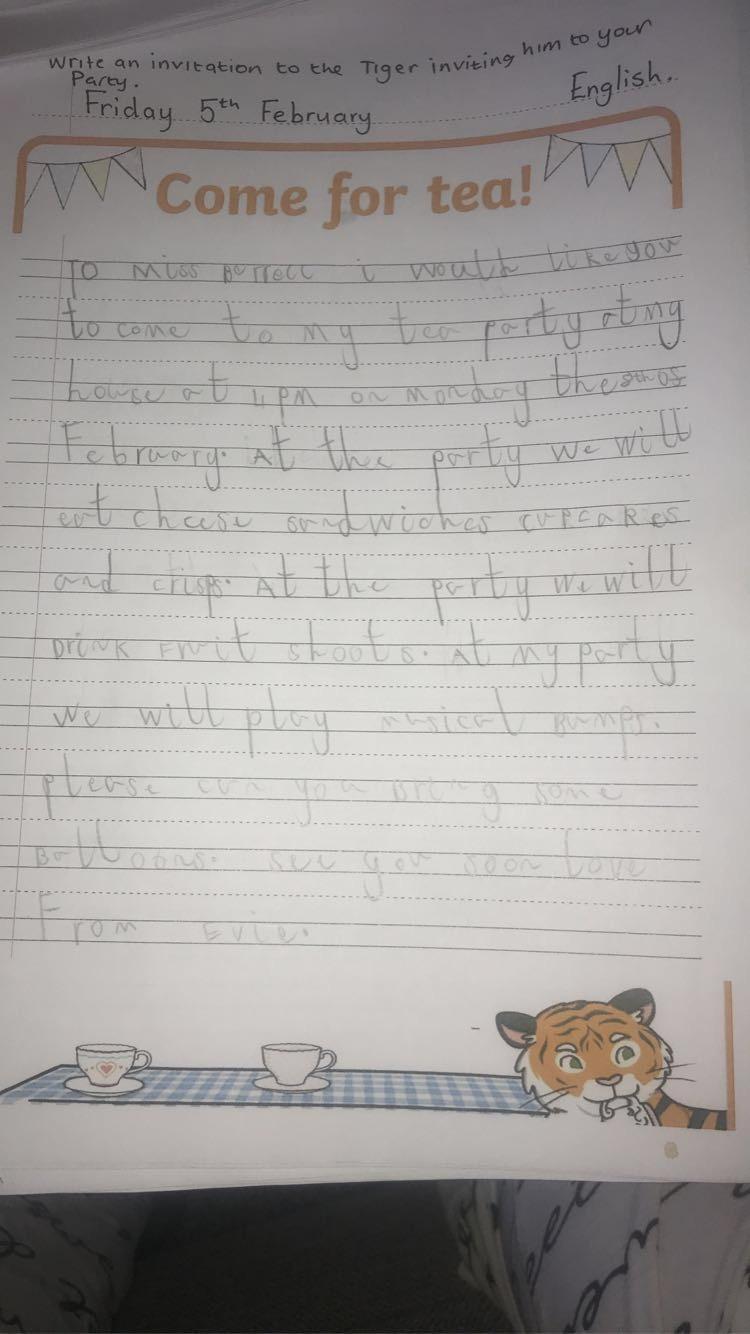 Write an invitation to the Tiger inviting him to your
Party.
English.
Friday 5th February
Come for tea!
To Miss Borrell i would like you
to come to my tea party at my
house at 4PM on monday the 8th of
February. At the party we will
eat cheese sandwiches cupcakes
and crisps. At the party we will
Drink Fruit shoots. At my party
we will play musical Bumps.
please can you bring some
Balloons. see you soon love
From Evie.